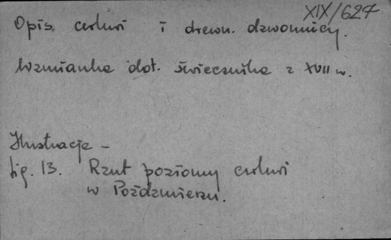 XIX/627
Opis. cerkwi i drewn. dzwonnicy.
Wzmianka dot. świecznika z XVII w.
Ilustracje -
fig. 13. Rzut poziomy cerkwi
w Poździmierzu.